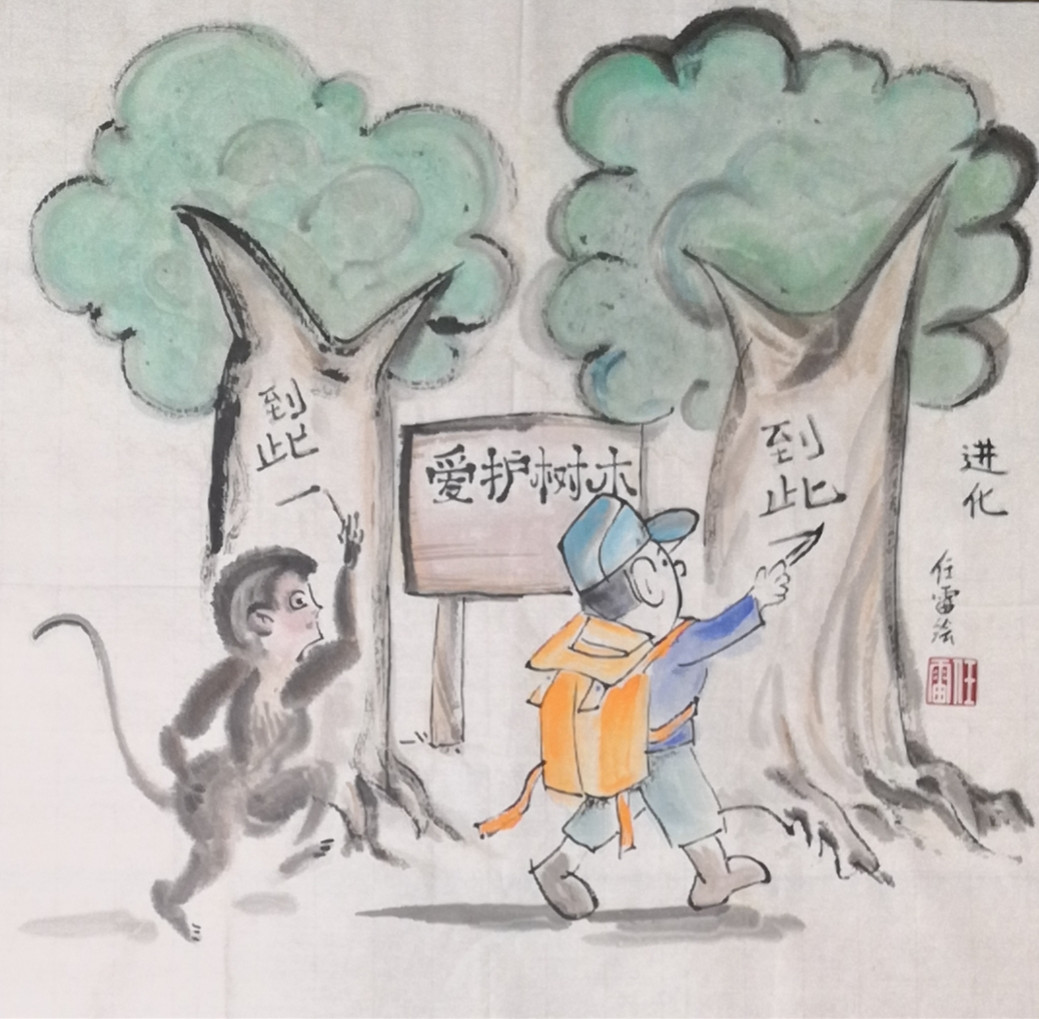 到此一
爱护树木
到此一
进化
任雷绘
任雷